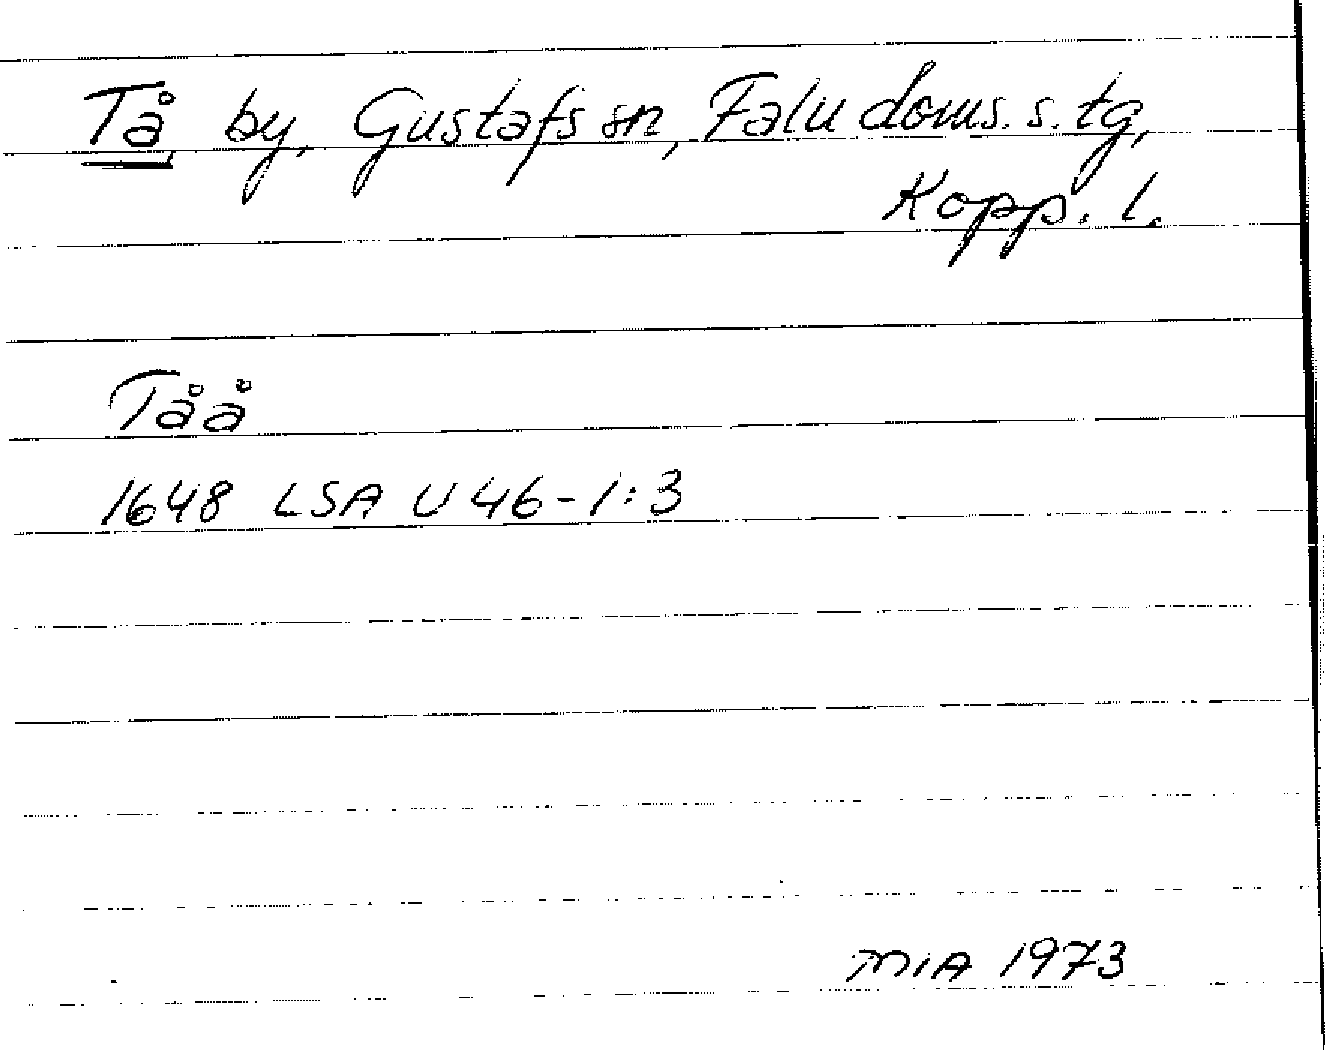 Tå by, Gustafs sn, Falu doms. s. tg,
Kopp. l.
Tåå
1648 LSA U 46-1:3
MIA 1973